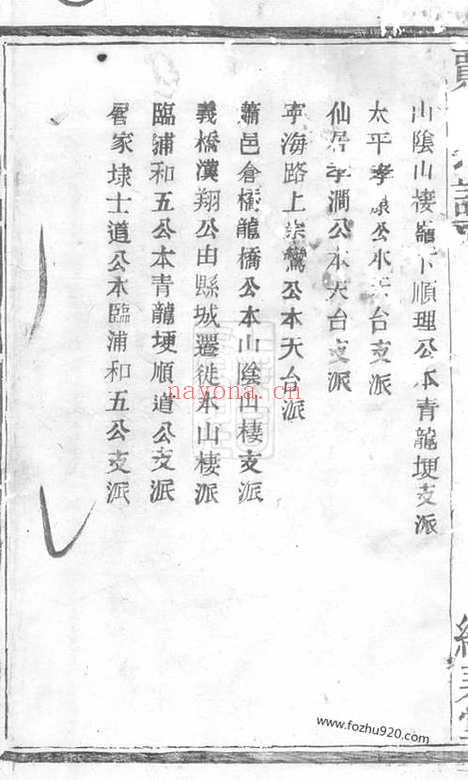 山陰山棲嶺下順理公本青龍埂支派
太平孝康公本天台支派
仙居李澗公本天台支派
寧海路上宗鸞公本天台派
蕭邑倉橋龍橋公本山陰山棲支派
義橋漢翔公由縣城遷徙本山棲派
臨浦和五公本青龍埂順道公支派
曾家埭士道公本臨浦和五公支派
nayona.cn
www.fozhu920.com